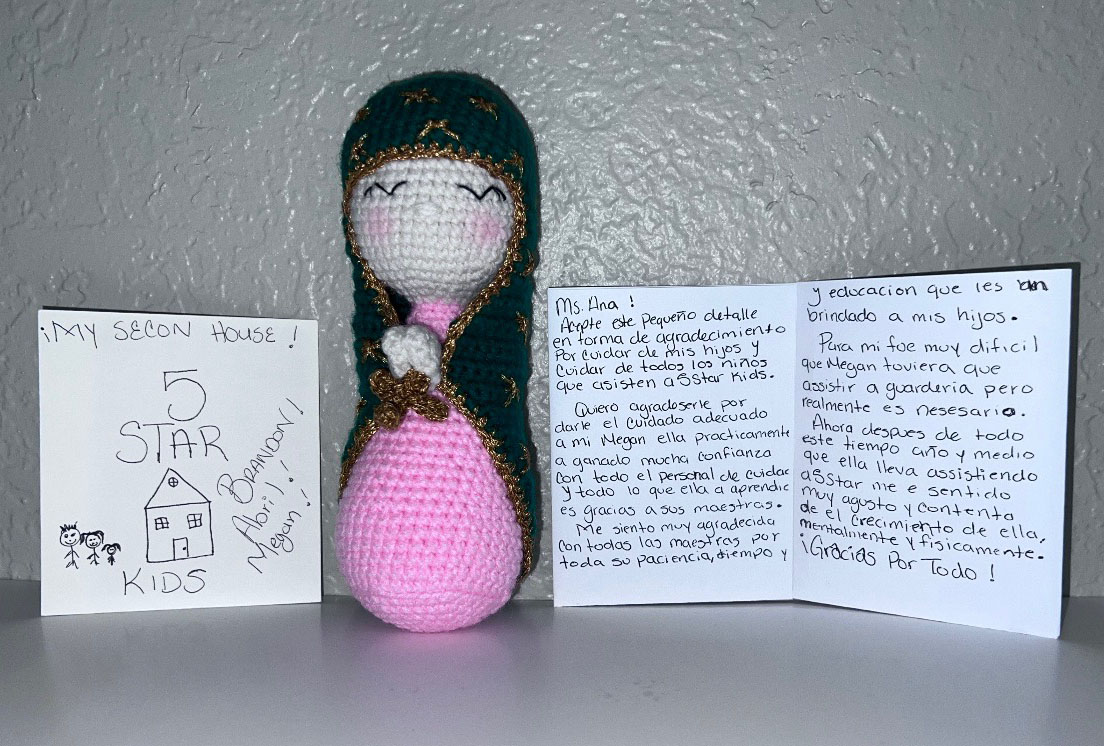 ¡MY SECON HOUSE!
5
STAR
BRANDON!
Abri!!
Megan!
KIDS
Ms. Ana!
Acepte este Pequeño detalle
en forma de agradecimiento
Por cuidar de mis hijos y
Cuidar de todos los niños
que asisten a 5Star Kids.
Quiero agradeserle por
darle el cuidado adecuado
a mi Megan ella practicamente
a ganado mucha confianza
con todo el personal de cuidar
y todo lo que ella a aprendic
es gracias a sus maestras.
Me siento muy agradecida
con todas las maestras por
toda su paciencia, tiempo y
y educacion que les an
brindado a mis hijos.
Para mi fue muy dificil
que Megan tuviera que
assistir a guarderia pero
realmente es nesesario.
Ahora despues de todo
este tiempo año y medio
que ella lleva assistiendo
a 5Star me e sentido
muy agusto y contenta
de el Crecimiento de ella,
mentalmente y fisicamente.
¡Gracias Por Todo!